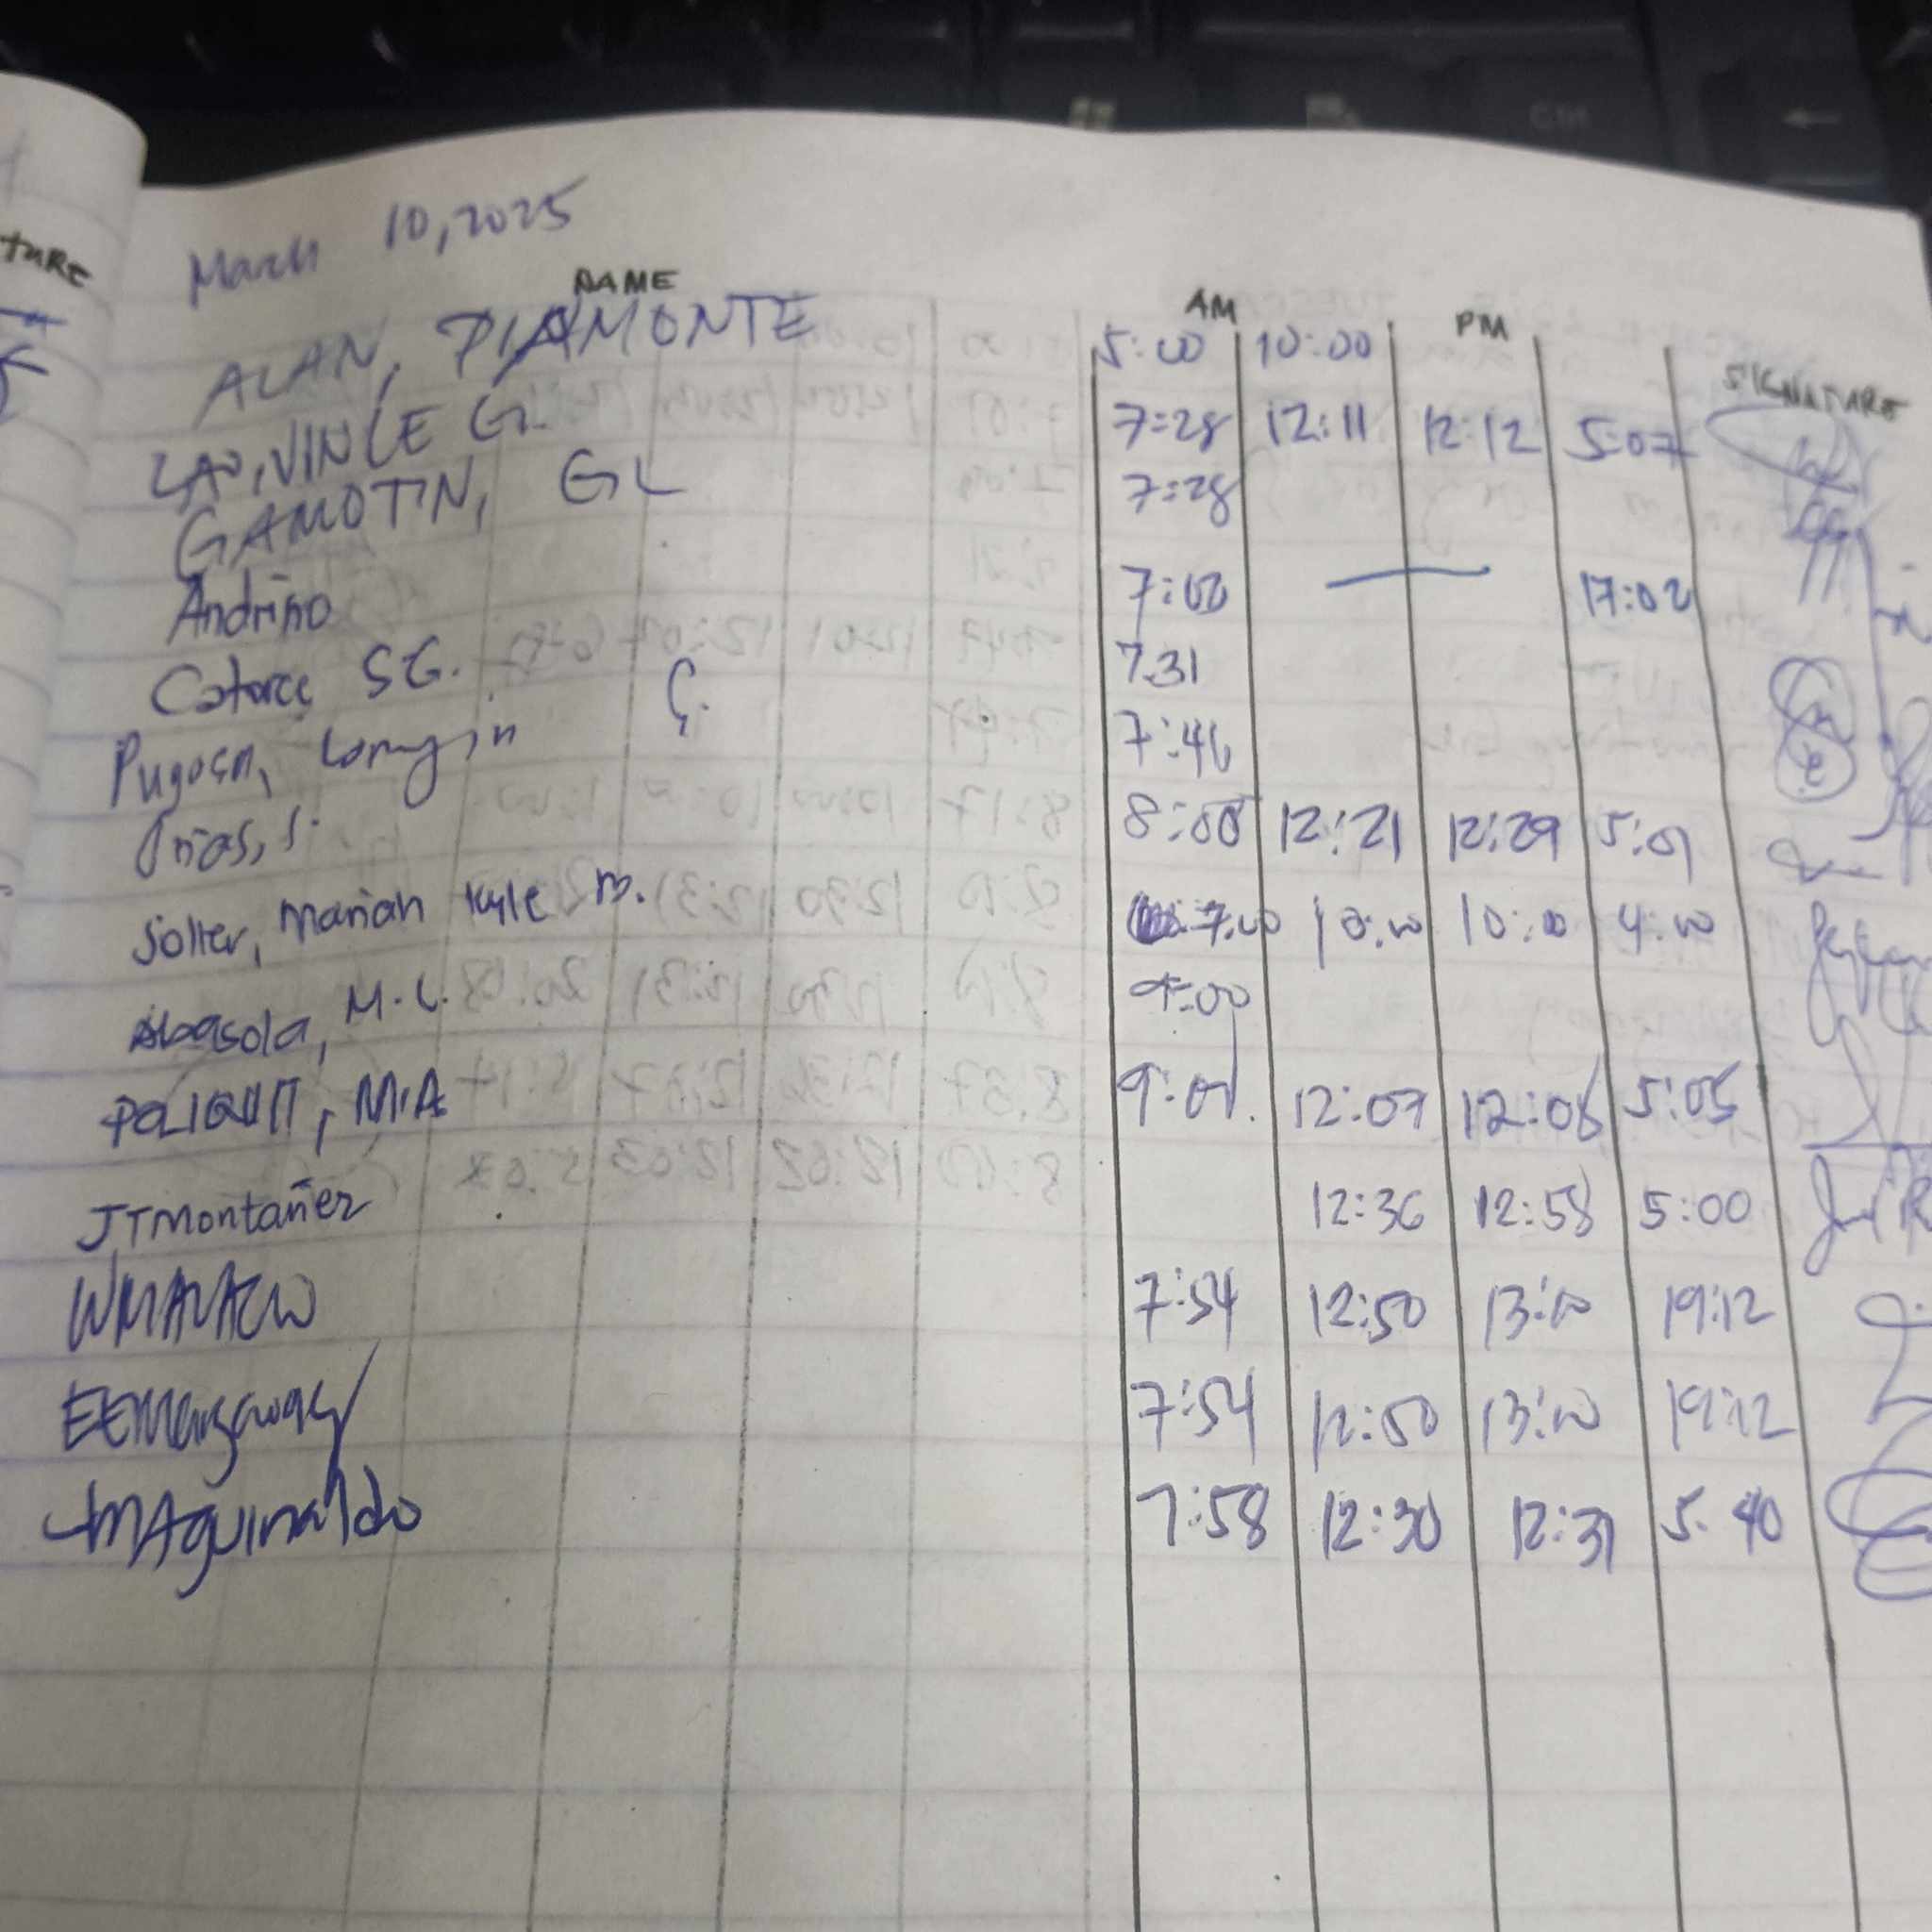 TURE
March 10, 2025
NAME AM PM SIGNATURE
ALAN, PIAMONTE 5:00 10:00
LAO, VINCE G. 7:28 12:11 12:12 5:07
GAMOTIN, GL 7:28
Andrino 7:00 17:02
Catorce SG. 7:31
Pugosa, G. 7:46
Arias, S. 8:00 12:21 12:29 5:01
Solter, Mariah Kyle M. 7:00 10:00 10:00 4:00
Abasola, M.L. 9:00
POLIQUIT, M.A 9:01. 12:07 12:08 5:05
JTMontañez 12:36 12:58 5:00
7:54 12:50 13:00 19:12
7:54 12:50 13:00 19:12
MAguinaldo 7:58 12:30 12:31 5:40